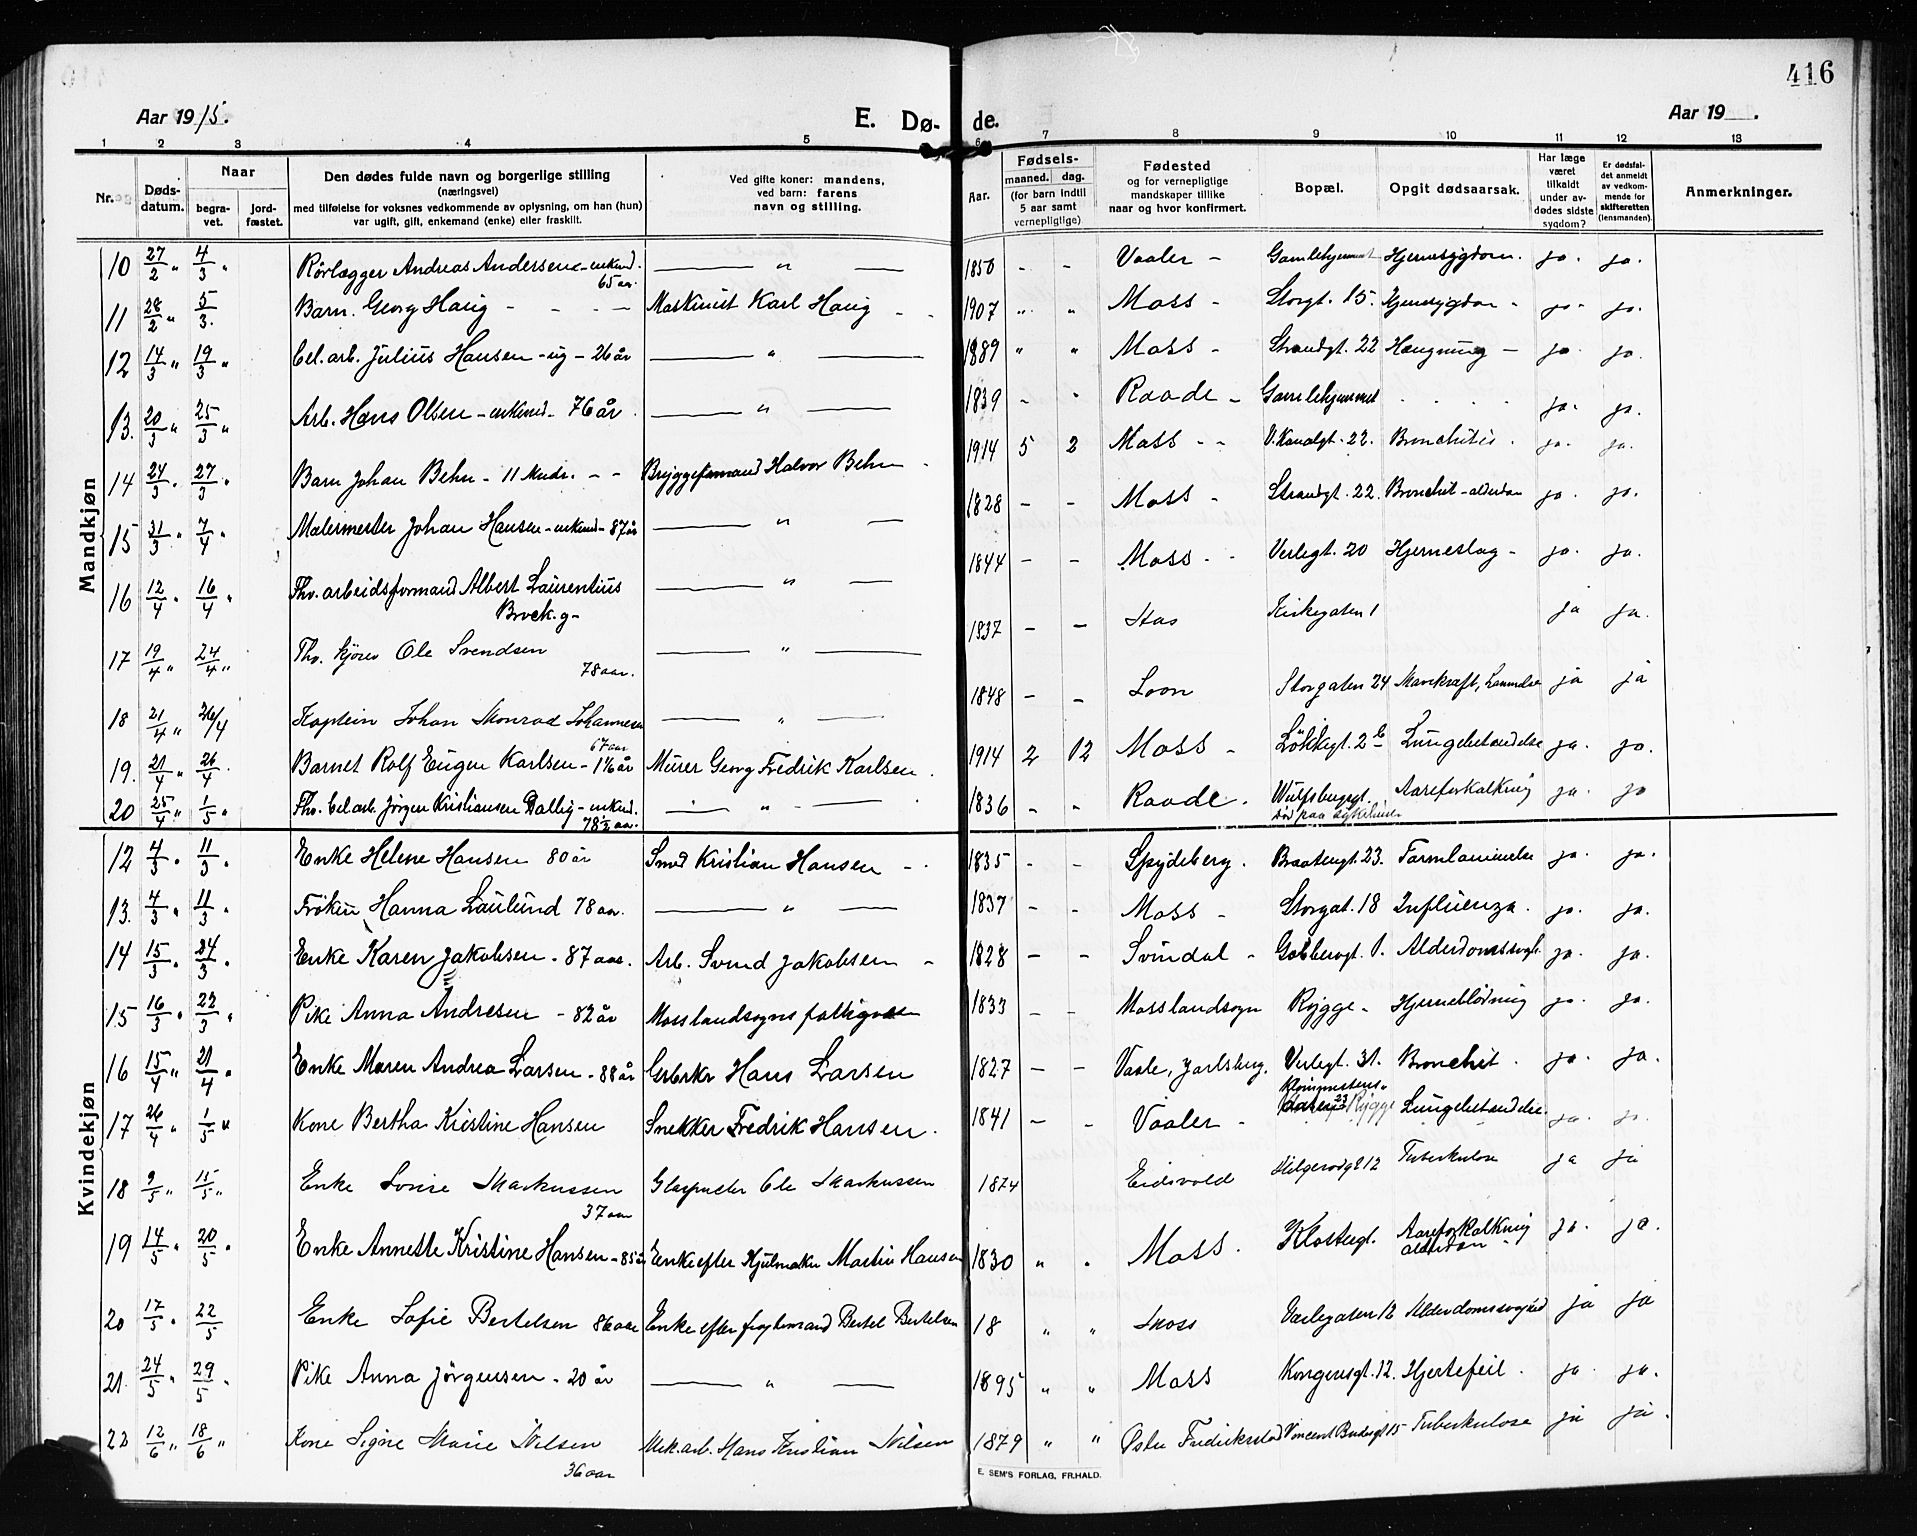 416
Aar 1915.
E. Dø- de.
Aar 19 .
1 2 3 4 5 6 7 8 9 10 11 12 13
Nr. Døds-datum. Naar begra-vet. jord-fæstet. Den dødes fulde navn og borgerlige stilling (næringsvei) med tilføielse for voksnes vedkommende av oplysning, om han (hun) var ugift, gift, enkemand (enke) eller fraskilt. Ved gifte koner: mandens, ved barn: farens navn og stilling. Aar. Fødsels- maaned. dag. (for barn indtil 5 aar samt vernepligtige) Fødested og for vernepligtige mandskaper tillike naar og hvor konfirmert. Bopæl. Opgit dødsaarsak. Har læge været tilkaldt under av-dødes sidste sygdom? Er dødsfal-det anmeldt av vedkom-mende for skifteretten (lensmanden). Anmerkninger.
Mandkjøn
10 27/2 " 4/3 " Rørlægger Andreas Andersen - enkmd. 65 aar. — " — 1850 - - Vaaler - Gamlehjemmet Hjernesygdom. ja. ja.
11 28/2 " 5/3. Barn. Georg Haug - - - Maskinist Karl Haug - - 1907 " " Moss - Storgt. 15. Hjernesygdom - ja. ja.
12 14/3 " 19/3 " Cel. arb. Julius Hansen - ug - 26 år — " — 1889 " " Moss - Strandgt. 22 Hængning - ja. ja.
13. 20/3 " 25/3 " Arb. Hans Olsen - enkemd - 76 år. — " — 1839 - " Raade - Gamlehjemmet . . . . ja. ja.
14 24/3 " 27/3 " Barn Johan Behn - 11 Mndr. - - Bryggeformand Halvor Behn - 1914 5 2 Moss - - V. Kanalgt. 22. Bronchitis. ja. ja.
15 31/3 " 7/4 " Malermester Johan Hansen - enkmd - 87 år — " — 1828 - - Moss - Strandgt. 22. Bronchit - alderdom ja. ja.
16 12/4 " 16/4 " Fhv. arbeidsformand Albert Laurentius Brock. g - — " — 1844 - - Moss - - Verlegt. 20 Hjerneslag - ja. ja.
17 19/4 " 24/4 " Fhv. kjører Ole Svendsen 78 aar. — " — 1837 - - Kirkegaten 1 ja ja.
18 21/4 " 26/4 Kaptein Johan Monrad Johannesen 67 aar — " — 1848 - - Soon Storgaten 24 Mavekræft, ja ja
19. 21/4 " 26/4 . Barnet Rolf Eugen Karlsen - 1 1/6 år Murer Georg Fredrik Karlsen. 1914 2 12 Moss - Løkkegt. 2 b Lungebetændelse ja. ja.
20 25/4 " 1/5 " Fhv. Cel. arb. Jörgen Kristiansen Dalbig - enkmd. 78 1/2 aar. — " — 1836 - - Raade. Wulfsbergsgt. død paa sykehuset Aareforkalkning ja. ja
Kvindekjøn
12 4/3 " 11/3 " Enke Helene Hansen 80 år Smed Kristian Hansen - - 1835 - - Spydeberg. Braatengt. 23. Tarmlammelse ja. ja.
13. 4/3 " 11/3 " Frøken Hanna Laulund 78 aar. — " — 1837 - - Moss - Storgat. 18 Influenza. ja. ja.
14 15/3 " 24/3 " Enke Karen Jakobsen - 87 aar. Arb. Svend Jakobsen - 1828 - - Svindal - 1. ja. ja.
15 16/3 " 22/3 " Pike Anna Andresen - 82 år Moss landsogns fattigvæsen 1833 - - Moss landsogn Rygge - Hjerneblödning ja. ja.
16 15/4 " 21/4 " Enke Maren Andrea Larsen - 88 år Hans Larsen 1827 - - Vaale, Jarlsberg. Verlegt. 31. Bronchit. ja. ja.
17 26/4 " 1/5 " Kone Bertha Kristine Hansen Snekker Fredrik Hansen. 1841 - - Vaaler - Rygge Lungebetændelse. ja. ja.
18 9/5 " 15/5 " Enke Lovise Markussen 37 aar Glaspuster Ole Markussen 1874 Eidsvold Helgerødgt 12 Tuberkulose ja ja
19 14/5 " 20/5 " Enke Annette Kristine Hansen - 85 år Enke efter Hjulmaker Martin Hansen 1830 " " Moss. Klostergt. Aareforkalkning alderdom - ja. ja.
20 17/5 " 22/5 Enke Sofie Bertelsen 86 aar Enke efter Bertel Bertelsen 18 " " Moss Varlegaten 12 Alderdomssvaghed ja ja
21. 24/5 " 29/5 " Pike Anna Jörgensen - 20 år — " — 1895 " " Moss Kongensgt. 12. Hjertefeil. ja. ja.
22 12/6 " 18/6 " Kone Signe Marie Nilsen 36 aar Mek. arb. Hans Kristian Nilsen 1879 " " Østre Fredrikstad Vincent Budsgt 15 Tuberkulose ja ja.
E. SEM'S FORLAG, FR.HALD.